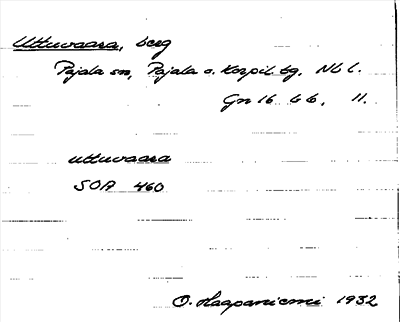 Uttuvaara, berg
Pajala sn, Pajala o. Korpil. tg, Nb l.
Gn 16 66, 11.
uttuvaara
SOA 460
O. Haapaniemi 1932